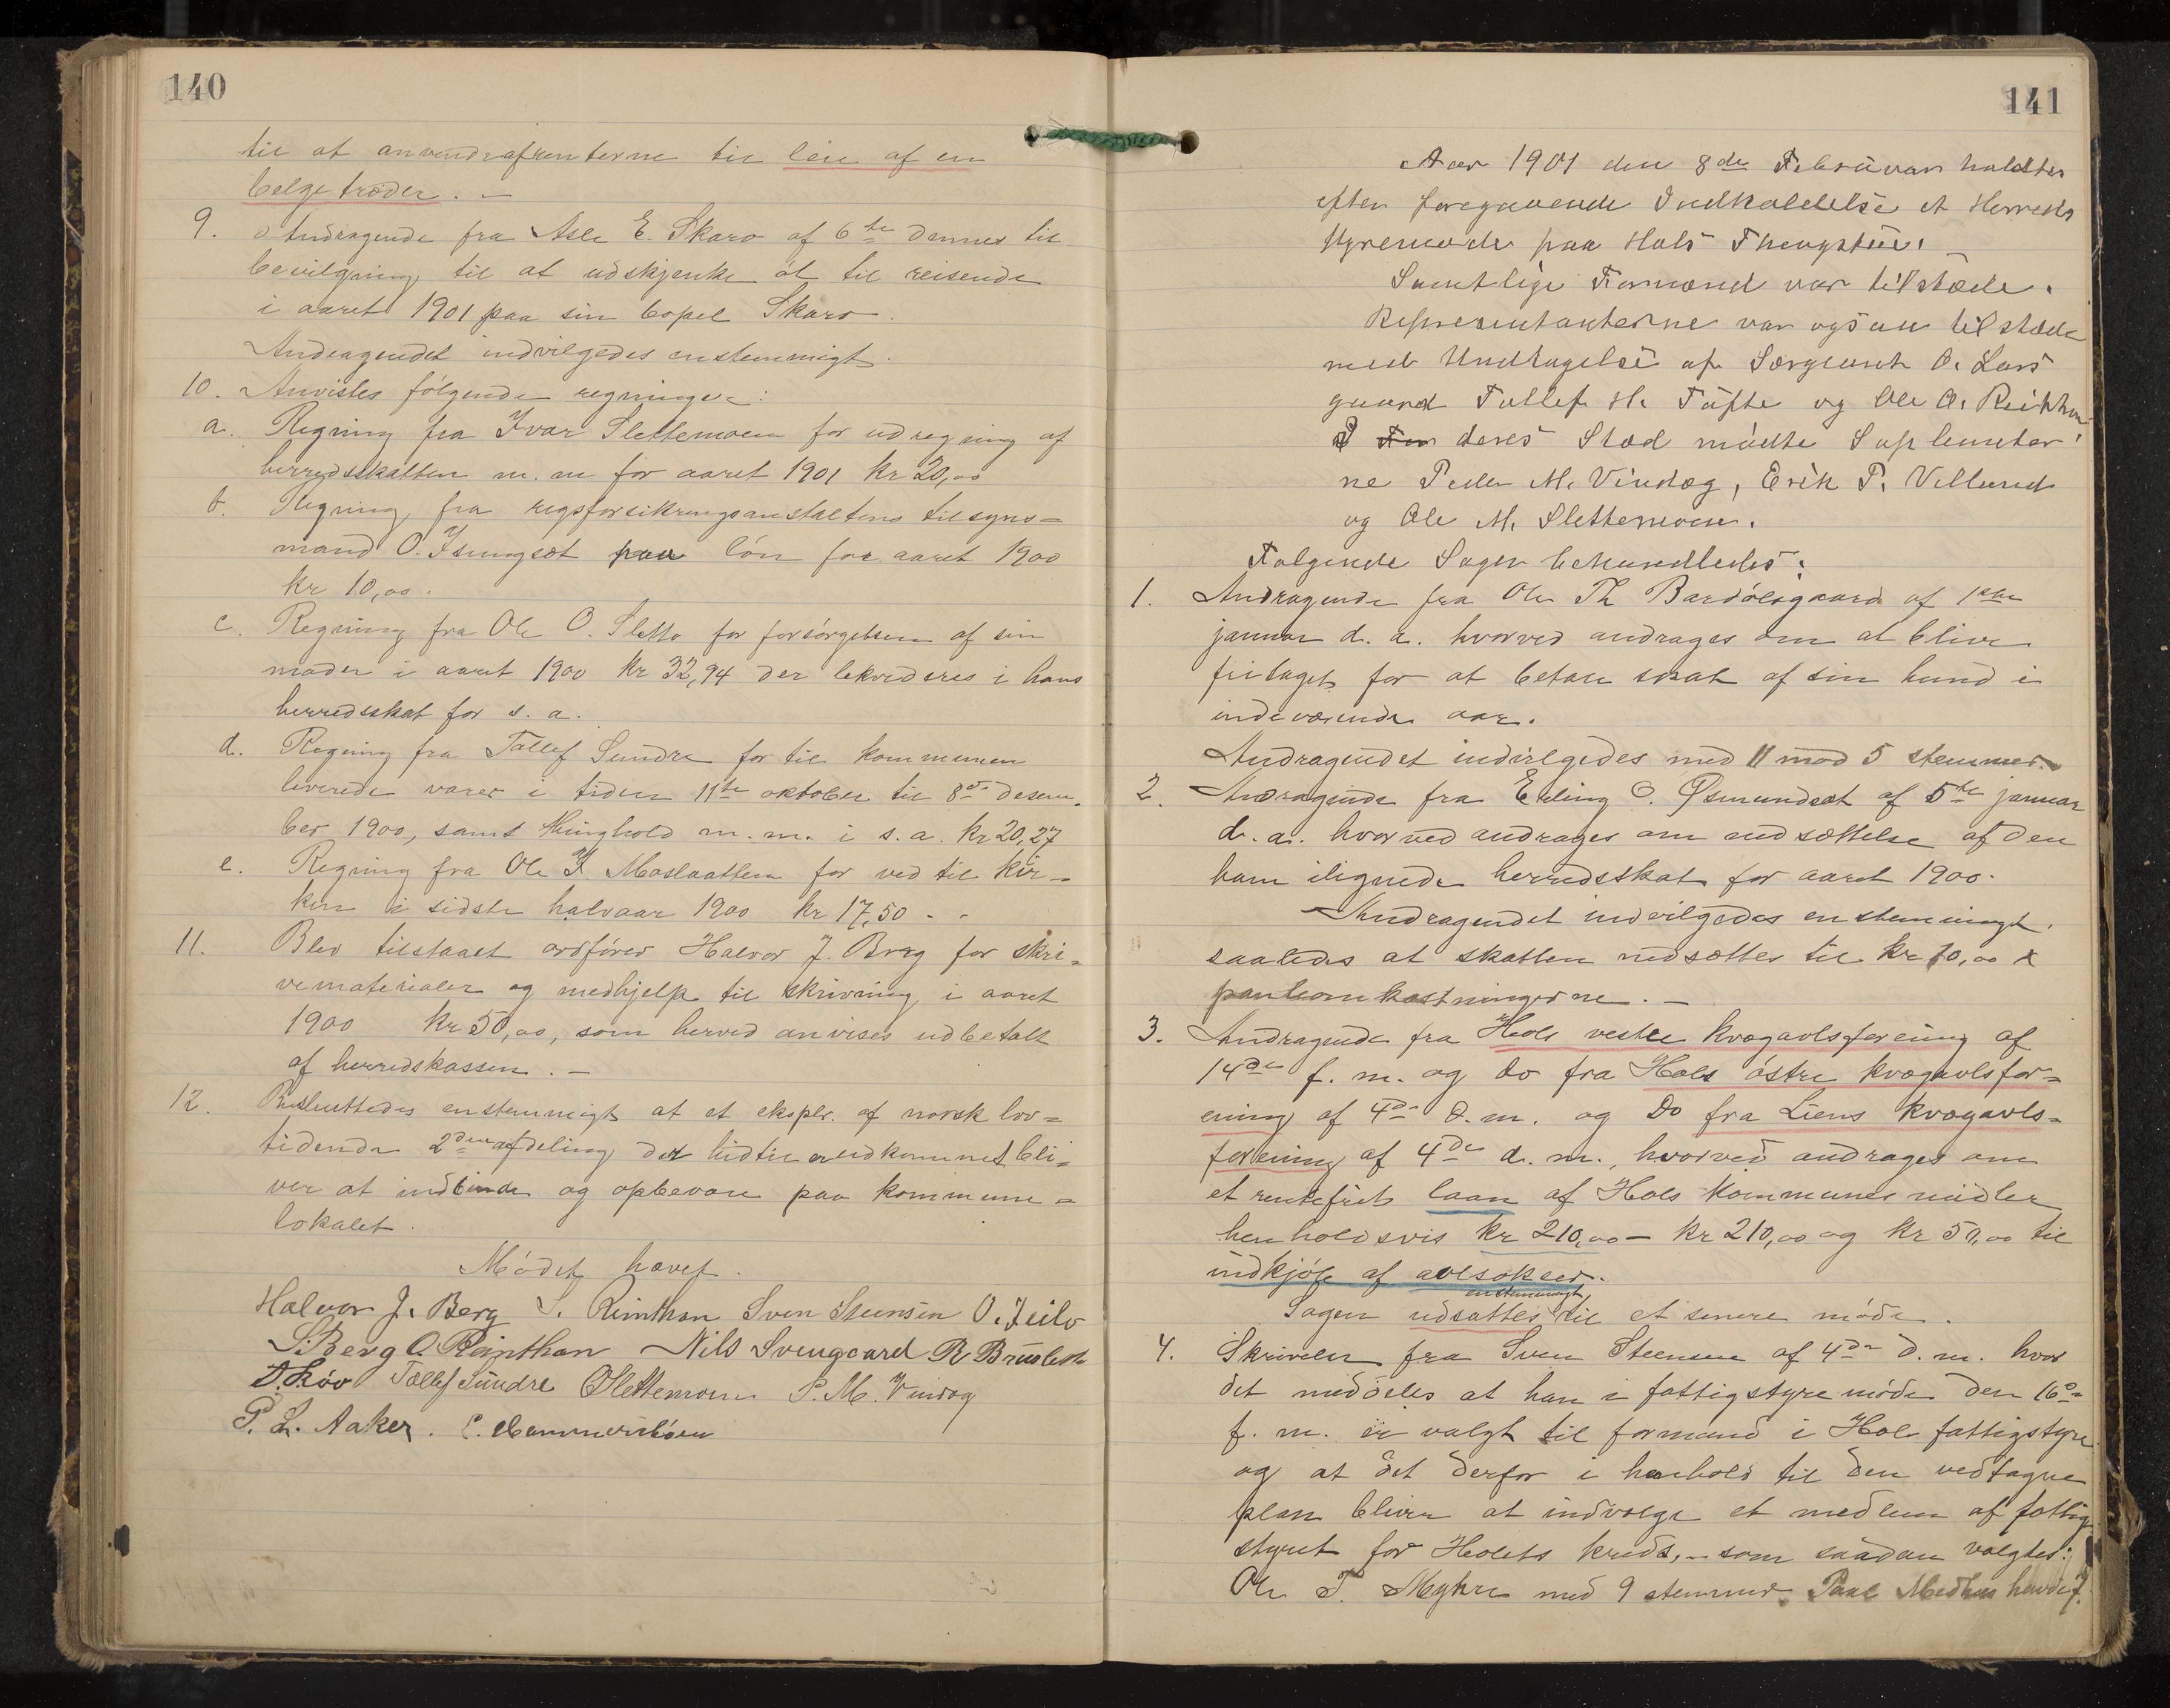 140
til at anvende afrenterne til leie af en
belgetræder. —
9. Andragende fra Asle E. Skaro af 6te dennes til
bevilgning til at udskjenke øl til reisende
i aaret 1901 paa sin bopel Skaro.
Andragendet indvilgedes enstemmigt.
10. Anvistes følgende regninger:
a. Regning fra Ivar Slettemoen for udregning af
herredsskatten m. m for aaret 1901 kr 20,00
b. Regning fra rigsforsikringsanstaltens tilsyns=
mand O. paa løn for aaret 1900
kr 10,00.
c. Regning fra Ole O. Sletto for forsørgelsen af sin
moder i aaret 1900 kr 32,94 der lekvideres i hans
herredsskat for s. a.
d. Regning fra Tollef Sundre for til kommunen
leverede varer i tiden 11te oktober til 8de desem=
ber 1900, samt thinghold m. m. i s. a. kr 20,27
e. Regning fra Ole I. Moslaatten for ved til kir=
ken i sidste halvaar 1900 kr 17,50 - -
11. Blev tilstaaet ordfører Halvor J. Berg for skri=
vematerialer og medhjelp til skrivning i aaret
1900 kr 50,00, som herved anvises udbetalt
af herredskassen. —
12. Besluttedes enstemmigt at et expl. af norsk lov=
tidende 2den afdeling der hidtil er udkommet bli=
ver at indbinde og opbevare paa kommune=
lokalet.
Mødet hævet.
Halvor J. Berg S. Rimthon Sven Steensen O. Feilo
S. Berg O. Reinthon Nils Svengaard R Brusletto
T. Løv Tollef Sundre OSlettemoen P. M. Vindeg
P. L. Aaker. E. Hammersbøen
141
Aar 1901 den 8de Februar holdtes
efter foregaaende Indkaldelse et Herreds
styremøde paa Hols Thingstue.
Samtlige Formænd var tilstæde.
Representanterne var ogsaa tilstæde
med Undtagelse af Sergeant O. Lars
gaard Tollef H. Tufte og Ole O.
I For deres Sted mødte Suplenter
ne Peder M. Vindeg, Erik P. Villand
og Ole M. Slettemoen.
Følgende Sager behandledes:
1. Andragende fra Ole Th Bardølsgaard af 1ste
januar d. a. hvorved andrages om at blive
fritaget for at betale skat af sin hund i
indeværende aar.
Andragendet indvilgedes med 11 mod 5 stemmer.
2. Andragende fra Erling O. Øsmundset af 5te januar
d. a. hvorved andrages om nedsættelse af den
ham ilignede herredsskat for aaret 1900.
Andragendet indvilgedes enstemmigt.
saaledes at skatten nedsættes til kr 10,00 x
panteomkostningerne. —
3. Andragende fra Hols vestre kvægavlsforening af
14de f. m. og do fra Hols østre kvægavlsfor=
ening af 4de d. m. og Do fra Liens kvægavls=
forening af 4de d. m., hvorved andrages om
et rentefrit laan af Hols kommunes midler
henholdsvis kr 210,00 — kr 210,00 og kr 50,00 til
indkjøb af avlsokser.
enstemmigt,
Sagen udsattes til et senere møde.
4. Skrivelse fra Sven Steensen af 4de d. m. hvor
det meddeles at han i fattigstyremøde den 16de
f. m. er valgt til formand i Hols fattigstyre
og at det derfor i henhold til den vedtagne
plan bliver at indvælge et medlem af fattig
styret for Holets kreds, — som saadan valgtes:
Ole T. Myhre med 9 stemmer. Paul Medhus havde 7.